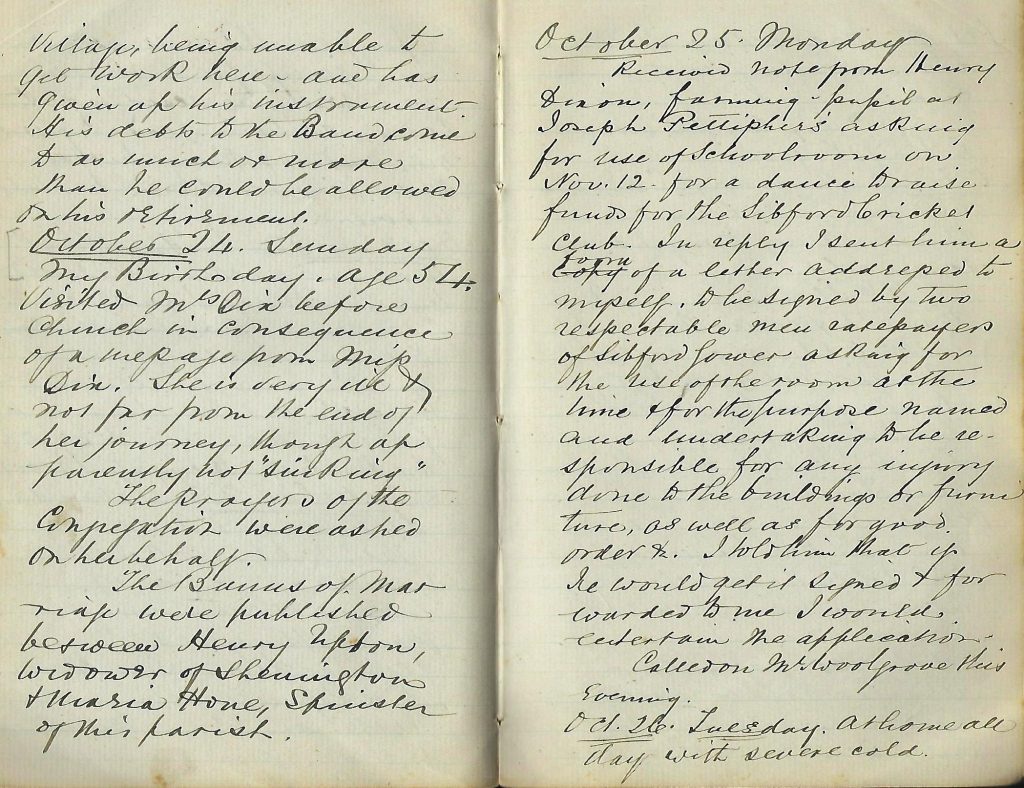 village, being unable to
get work here - and has
given up his instrument.
His debts to the Band come
to as much or more
than he could be allowed
on his retirement.
October 24. Sunday
My Birthday. age 54.
Visited Mrs Dix before
Church in consequence
of a message from Miss
Dix. She is very ill &
not far from the end of
her journey, though ap
parently not "sinking"
The prayers of the
Congregation were asked
on her behalf.
The Banns of Mar
riage were published
between Henry Upton,
widower of Shenington
& Maria Hone, Spinster
of this parish.
October 25. Monday
Received note from Henry
Dixon, farming-pupil at
Joseph Pettipher's asking
for use of Schoolroom on
Nov. 12. for a dance to raise
funds for the Sibford Cricket
Club. In reply I sent him a
form
copy of a letter addressed to
myself, to be signed by two
respectable men ratepayers
of Sibford Gower asking for
the use of the room at the
time & for the purpose named
and undertaking to be re-
sponsible for any injury
done to the buildings or furni
ture, as well as for good
order &c. I told him that if
he would get it signed & for
warded to me I would
entertain the application.
Called on Mr Woolgrove this
Evening.
Oct. 26. Tuesday. At home all
day with severe cold.